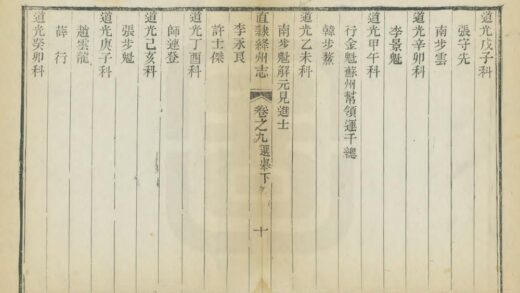 道光戊子科
張守先
南步雲
道光辛卯科
李景魁
道光甲午科
行金魁蘇州幫領運千總
韓步鰲
道光乙未科
南步魁解元見進士
直隸絳州志
卷之九選舉下
十
李永良
許士傑
道光丁酉科
師連登
道光己亥科
張步魁
道光庚子科
趙雲龍
薛行
道光癸卯科